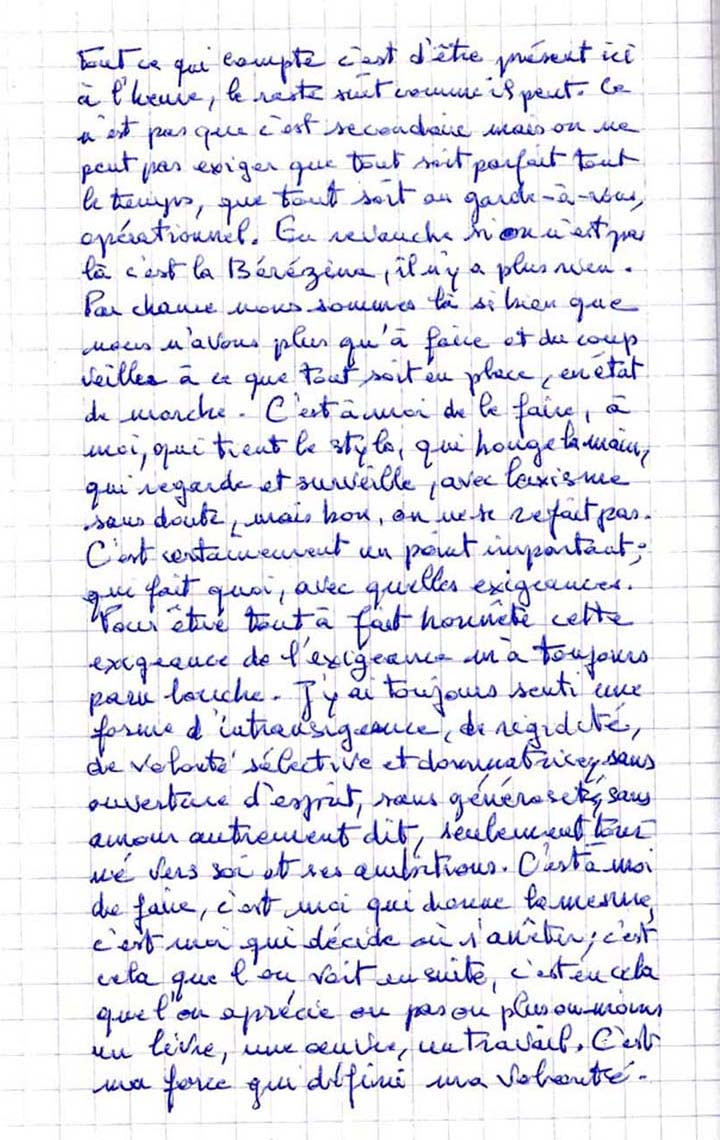 tout ce qui compte c'est d'être présent ici
à l'heure, le reste suit comme il peut. Ce
n'est pas que c'est secondaire mais on ne
peut pas exiger que tout soit parfait tout
le temps, que tout soit au garde-à-vous,
opérationnel. En revanche si on n'est pas
là c'est la Bérézina, il n'y a plus rien.
Par chance nous sommes là si bien que
nous n'avons plus qu'à faire et du coup
veiller à ce que tout soit en place, en état
de marche. C'est à moi de le faire, à
moi, qui tient le stylo, qui bouge la main,
qui regarde et surveille, avec laxisme
sans doute, mais bon, on ne se refait pas.
C'est certainement un point important;
qui fait quoi, avec quelles exigeances.
Pour être tout à fait honnête cette
exigeance de l'exigeance m'a toujours
paru louche. J'y ai toujours senti une
forme d'intransigeance, de rigidité,
de volonté sélective et dominatrice, sans
ouverture d'esprit, sans générosité, sans
amour autrement dit, seulement tour
né vers soi et ses ambitions. C'est à moi
de faire, c'est moi qui donne la mesure,
c'est moi qui décide où s'arrêter; c'est
cela que l'on voit ensuite, c'est en cela
que l'on apprécie ou pas ou plus ou moins
un livre, une œuvre, un travail. C'est
ma force qui définie ma volonté.